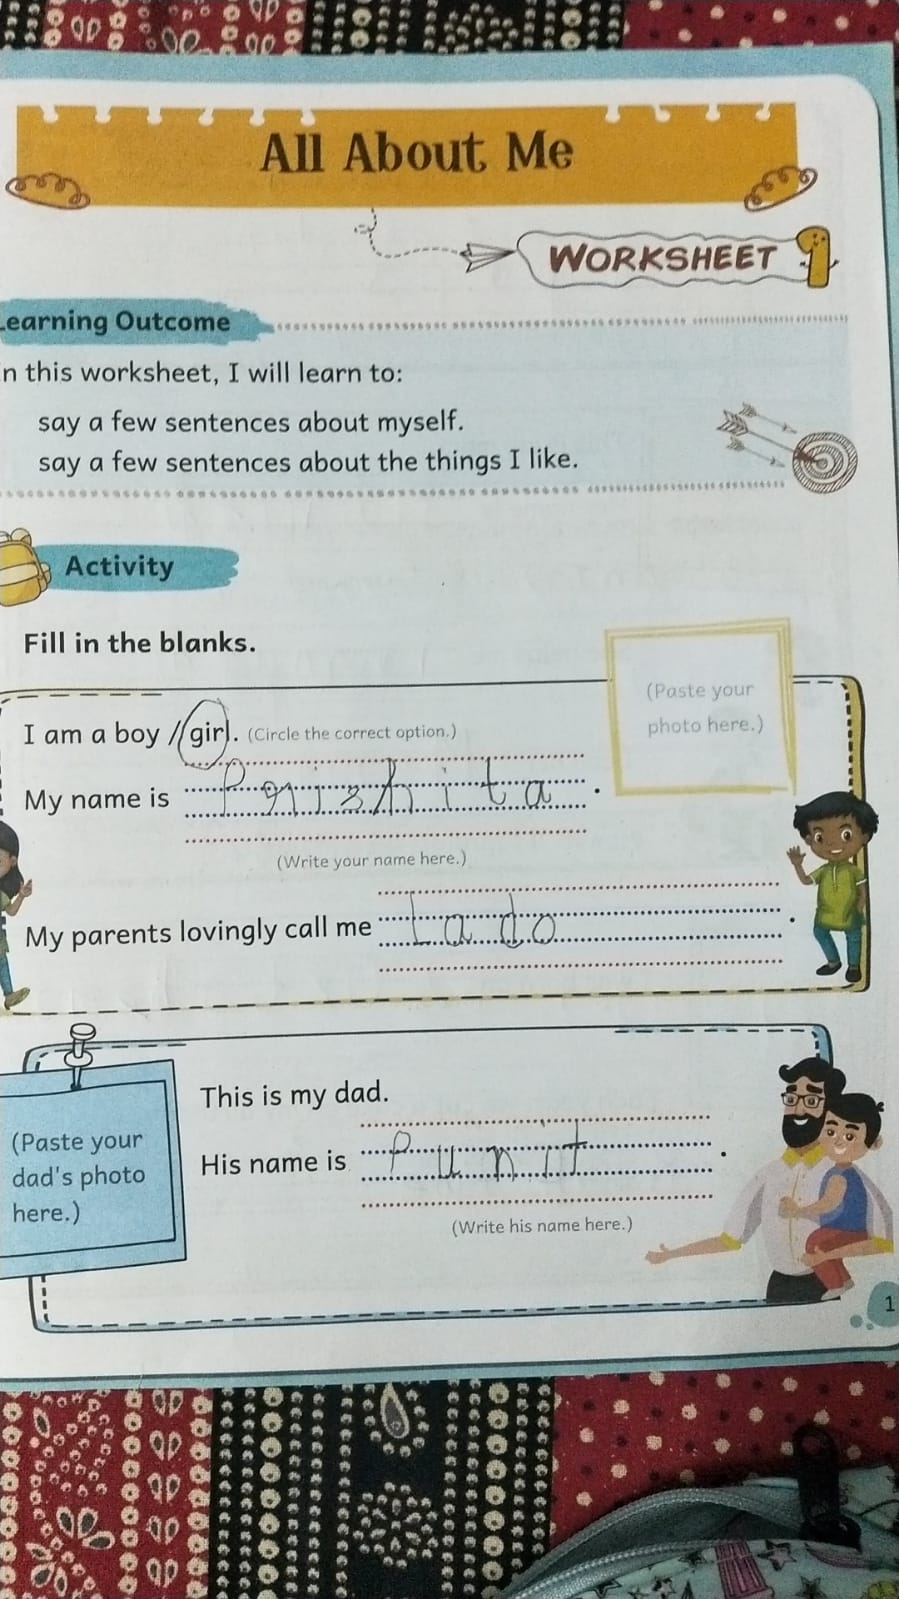 All About Me
WORKSHEET 1
Learning Outcome
In this worksheet, I will learn to:
say a few sentences about myself.
say a few sentences about the things I like.
Activity
Fill in the blanks.
(Paste your
photo here.)
I am a boy / girl. (Circle the correct option.)
My name is Penishita.
(Write your name here.)
My parents lovingly call me Lado.
This is my dad.
(Paste your
dad's photo
here.)
His name is Punit.
(Write his name here.)
1